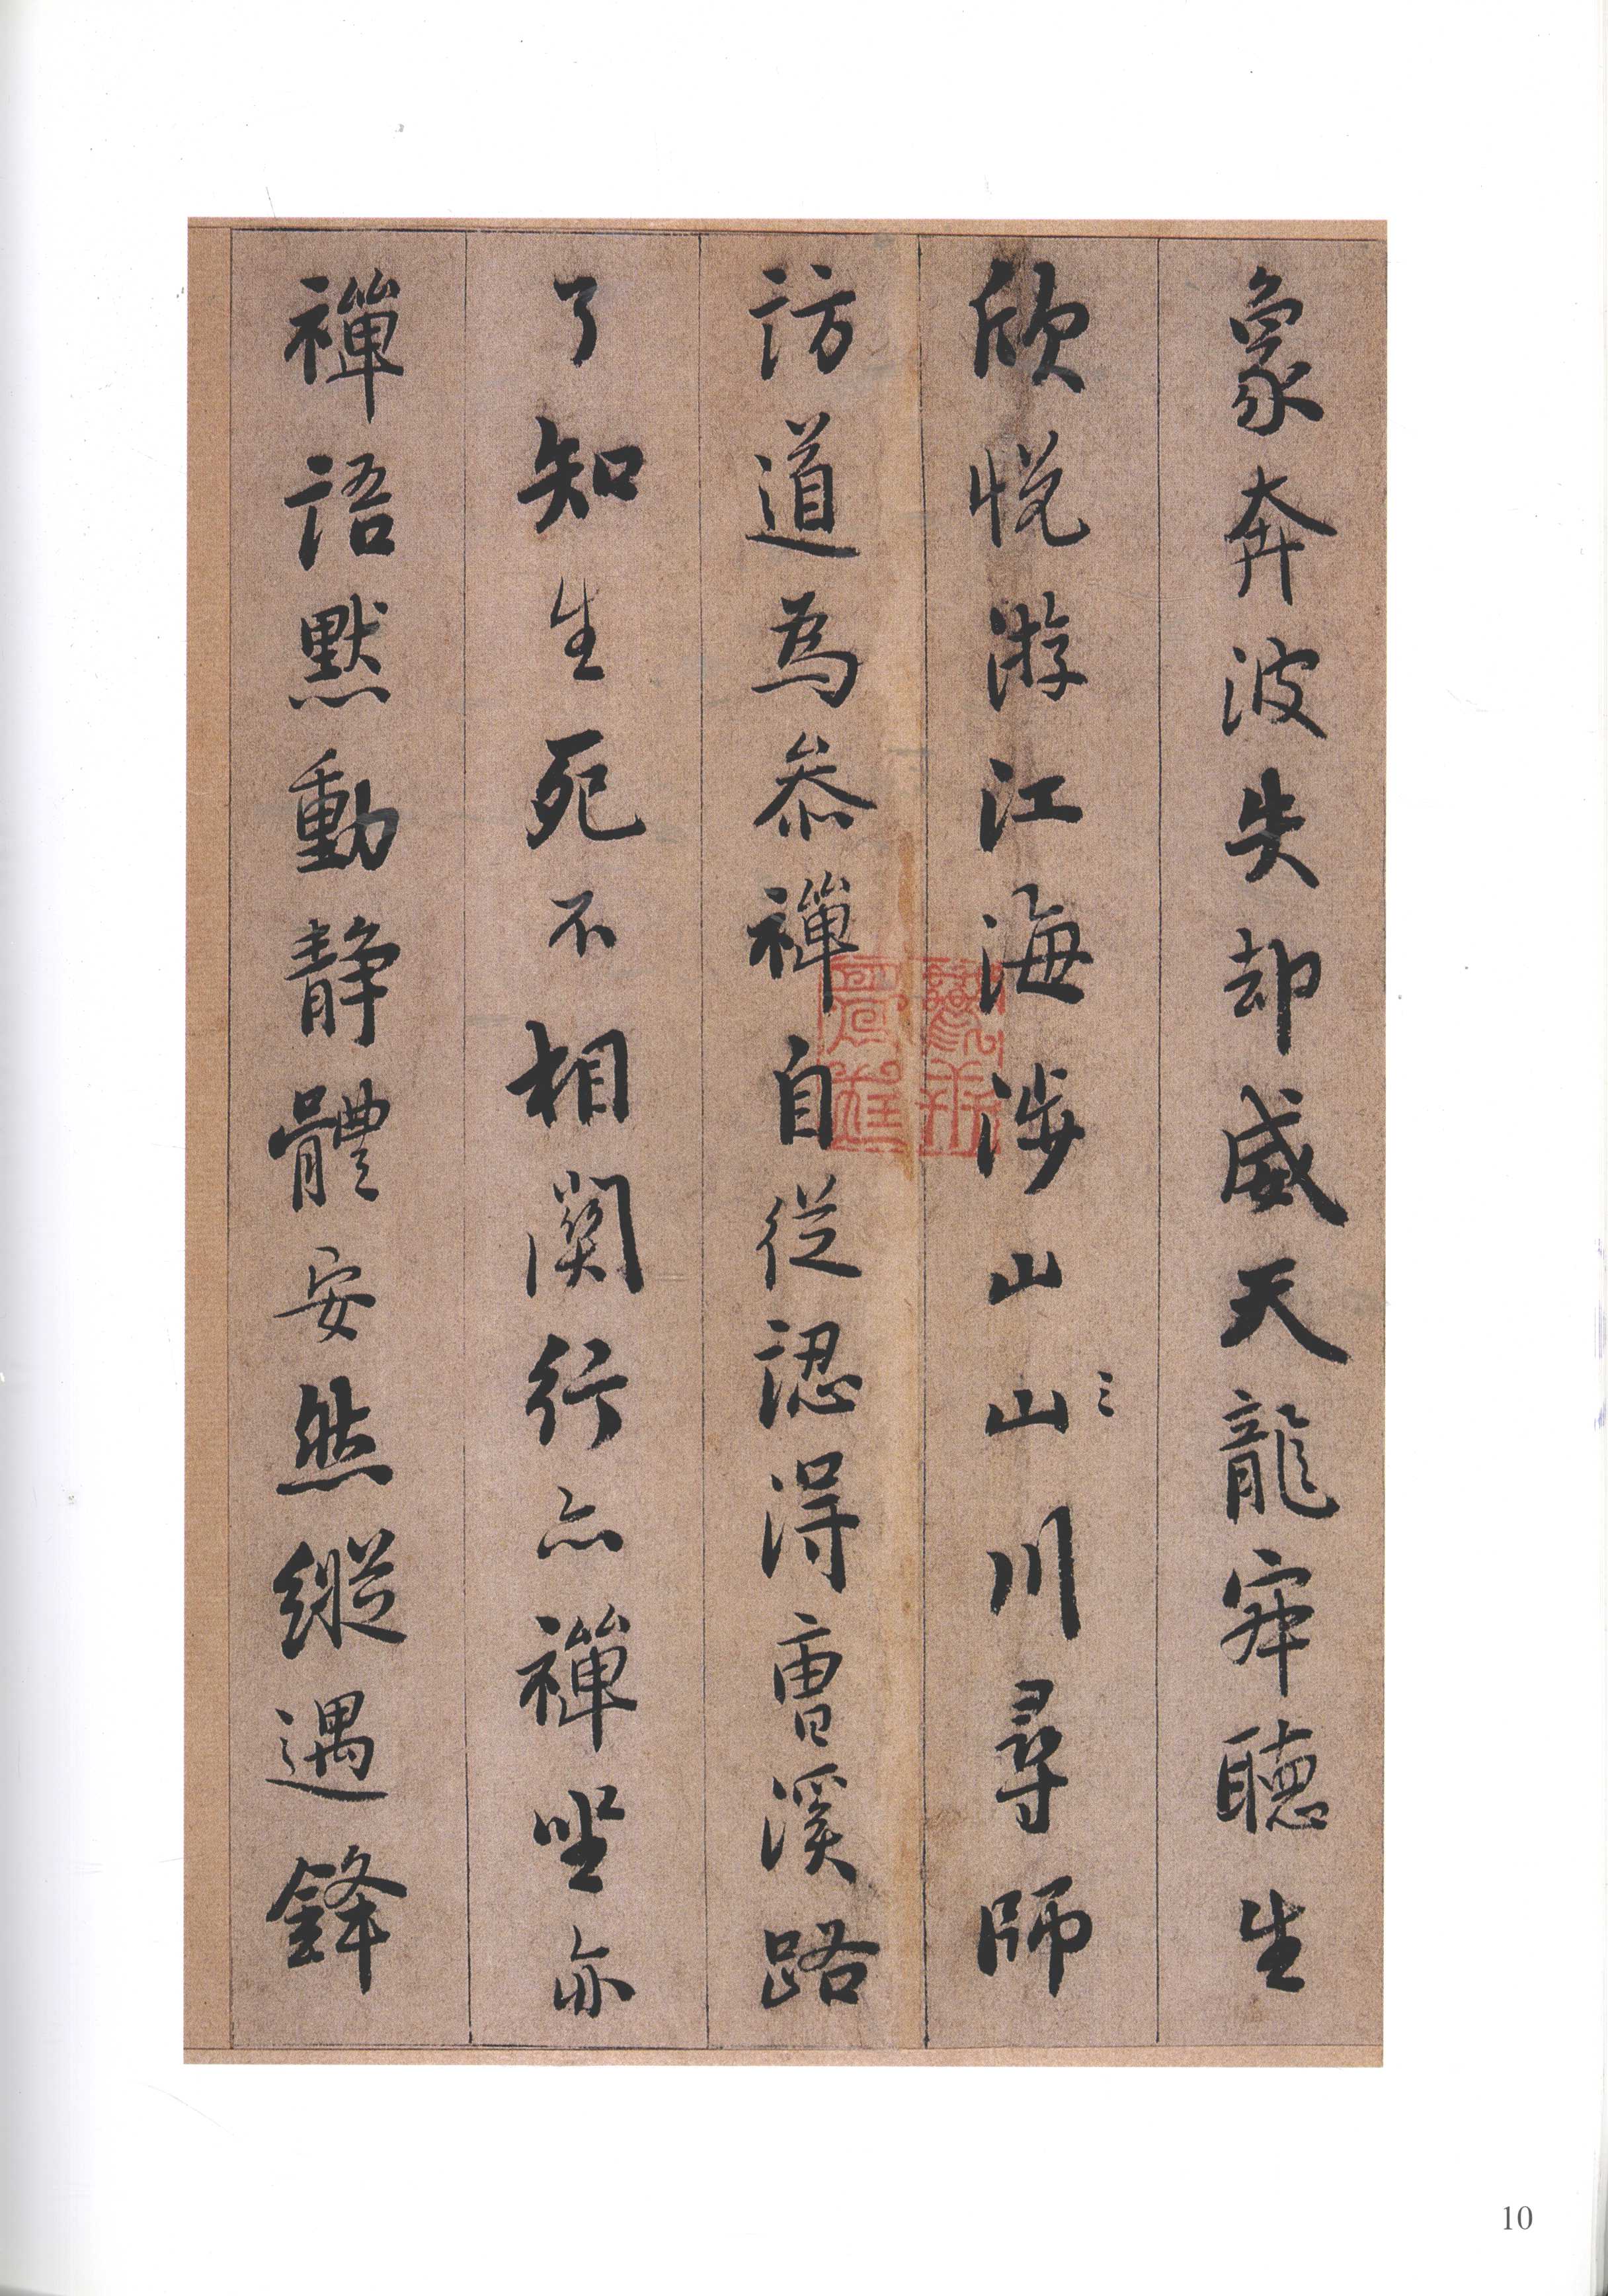 象奔波失却威天龍𡧯聽生
欣悅游江海涉山山川尋師
訪道為叅禪自從認得曹溪路
了知生死不相関行亦禪坐亦
禪語默動静體安然縱遇鋒
10